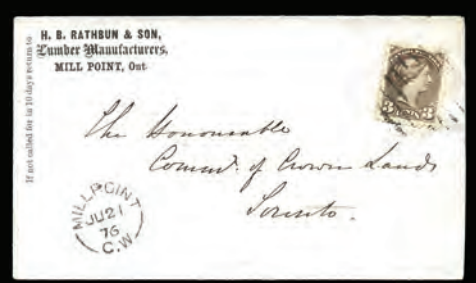 If not called for in 10 days return to
H. B. RATHBUN & SON,
Lumber Manufacturers,
MILL POINT, Ont.
3 CENTS 3
The Honourable
Commr. of Crown Lands
Toronto.
MILLPOINT
JU 21
76
C.W